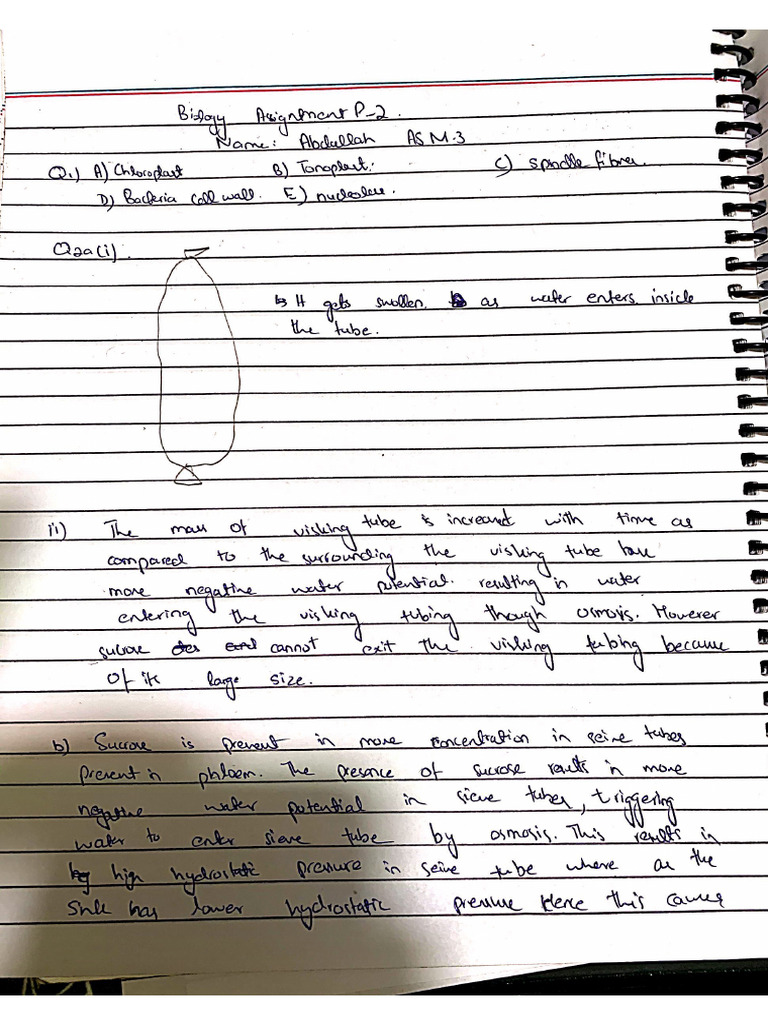 Biology Assignment P-2.
Name: Abdullah AS M.3
Q1.) A) Chloroplast B) Tonoplast. C) spindle fibres.
D) Bacteria cell wall. E) nucleolus.
Q2a(i).
↳ It gets swollen as water enters inside
the tube.
ii) The mass of visking tube is increased with time as
compared to the surrounding the visking tube have
more negative water potential resulting in water
entering the visking tubing though osmosis. However
sucrose cannot exit the visking tubing because
of its large size.
b) Sucrose is present in more concentration in seive tubes
present in phloem. The presance of sucrose results in more
negative water potential in sieve tubes, triggering
water to enter sieve tube by osmosis. This results in
high hydrostatic pressure in seive tube where as the
sink has lower hydrostatic pressure Hence this causes